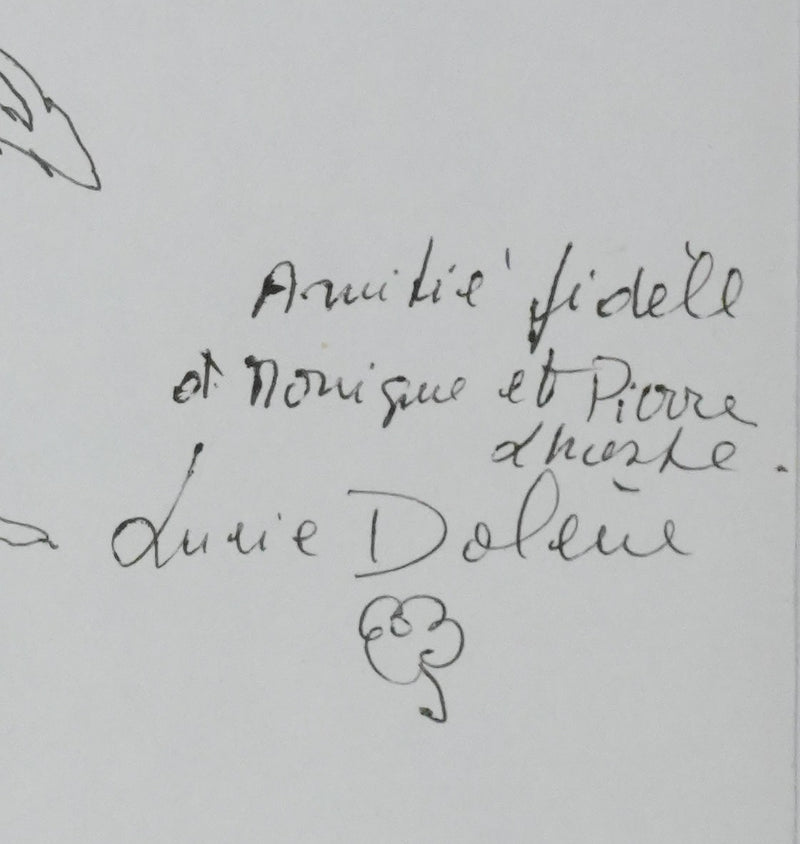 Amitié fidèle
à Monique et Pierre
Lhoste.
Lucie Dolène